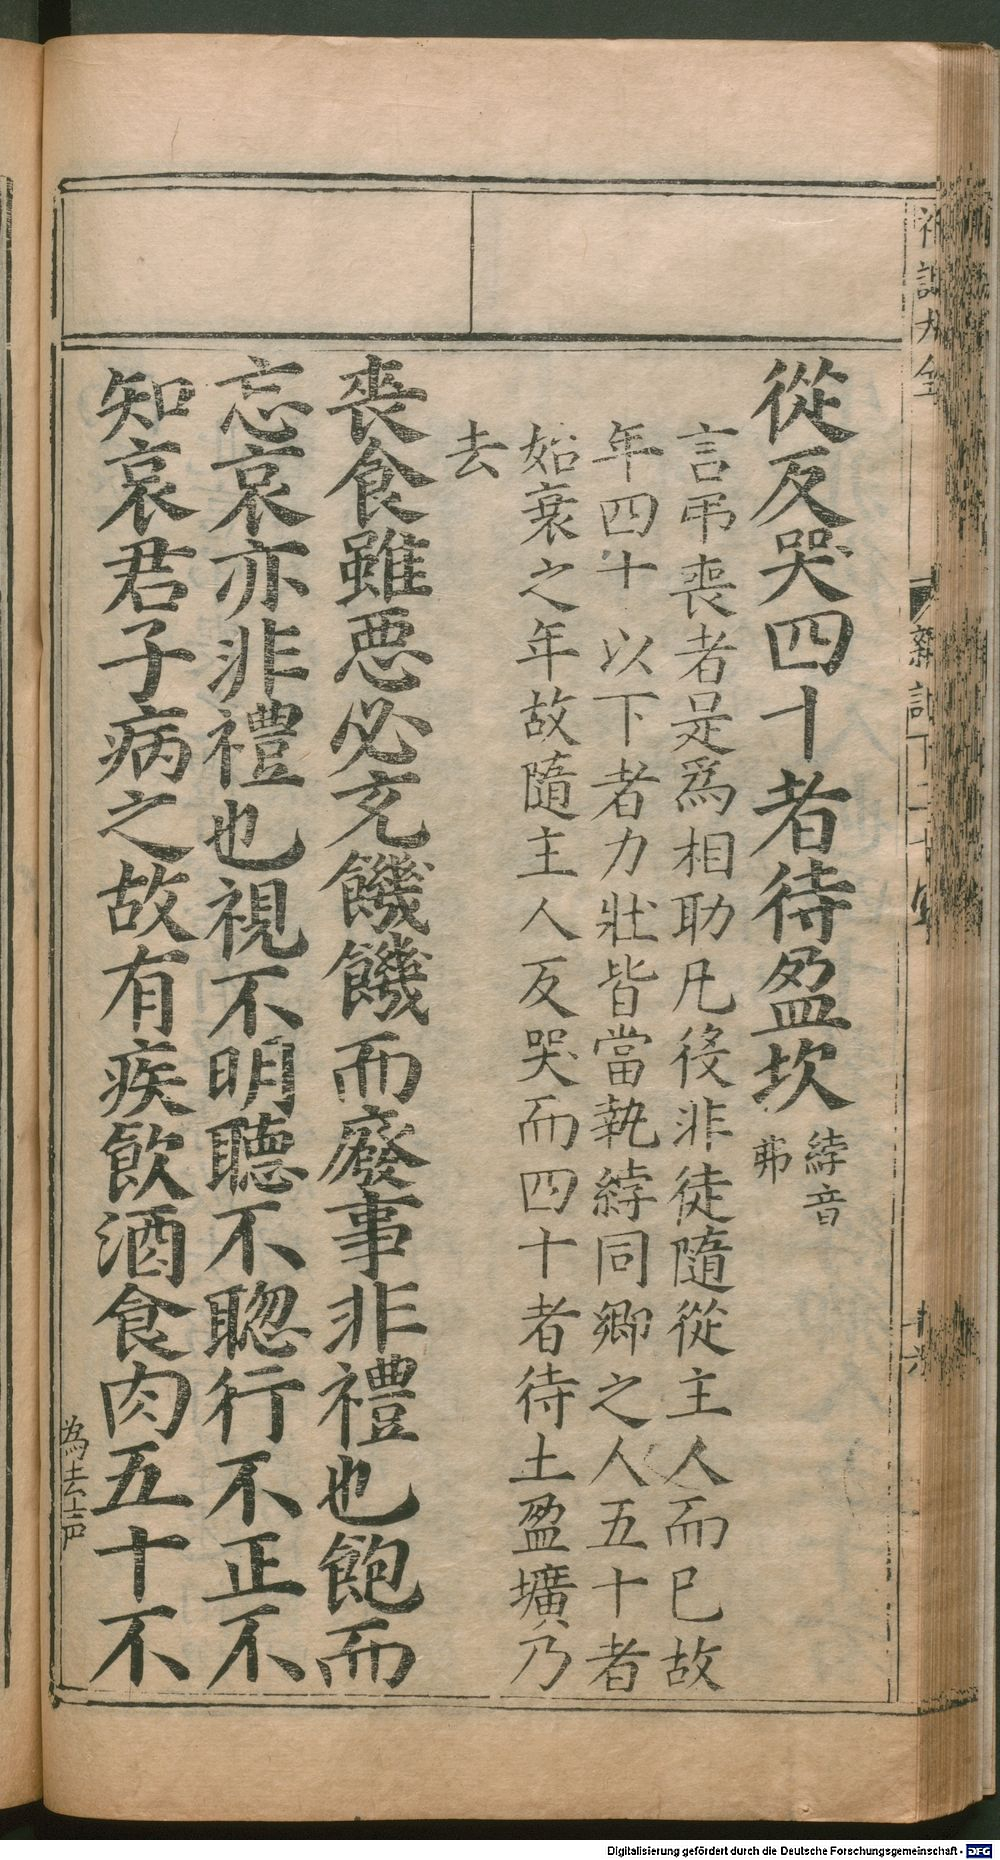 從反哭四十者待盈坎 綍音弗
言弔喪者是爲相助凡役非徒隨從主人而已故
年四十以下者力壯皆當執綍同鄉之人五十者
始衰之年故隨主人反哭而四十者待土盈壙乃
去
喪食雖惡必充饑饑而廢事非禮也飽而
忘哀亦非禮也視不明聽不聰行不正不
知哀君子病之故有疾飲酒食肉五十不
為去声
Digitalisierung gefördert durch die Deutsche Forschungsgemeinschaft - DFG